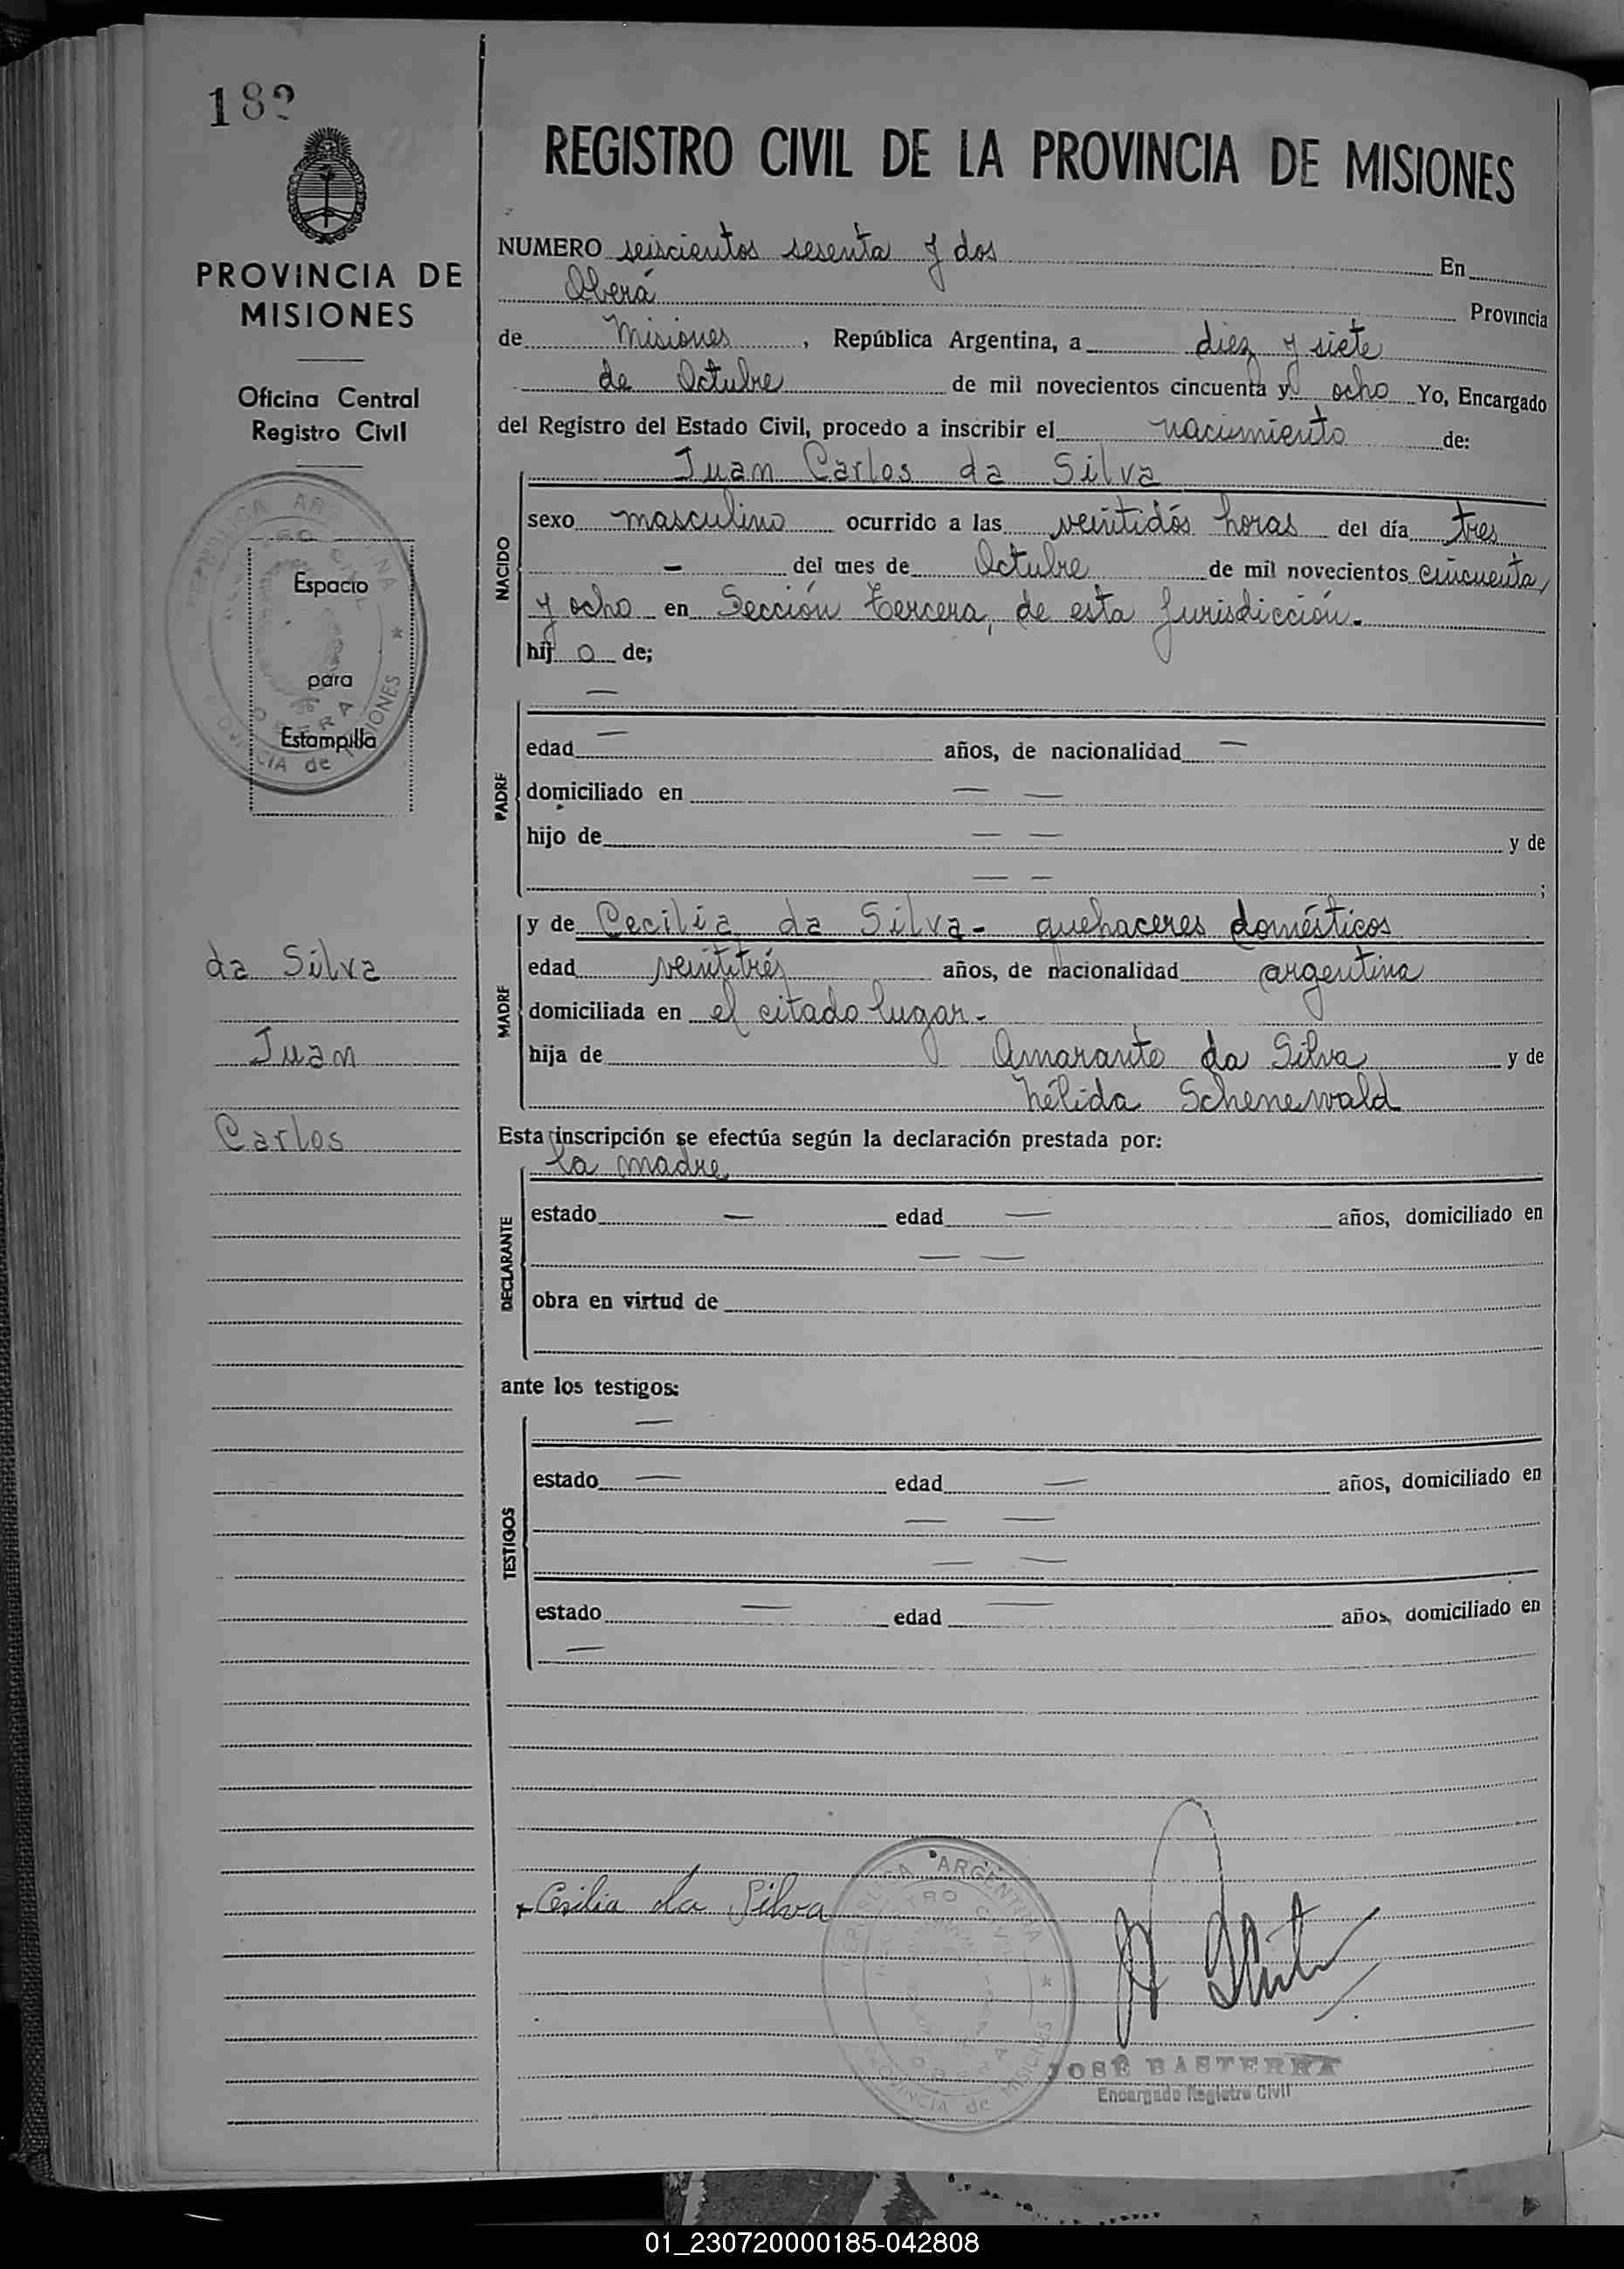 182
PROVINCIA DE
MISIONES
Oficina Central
Registro Civil
REPUBLICA ARGENTINA
Espacio
para
Estampilla
OBERA
PROVINCIA de MISIONES
da Silva
Juan
Carlos
REGISTRO CIVIL DE LA PROVINCIA DE MISIONES
NUMERO seiscientos sesenta y dos En
Oberá Provincia
de Misiones, República Argentina, a diez y siete
de Octubre de mil novecientos cincuenta y ocho Yo, Encargado
del Registro del Estado Civil, procedo a inscribir el nacimiento de:
Juan Carlos da Silva
NACIDO
sexo masculino ocurrido a las veintidós horas del día tres
— del mes de Octubre de mil novecientos cincuenta
y ocho en Sección Tercera, de esta Jurisdicción.-
hij o de;
PADRE
—
edad — años, de nacionalidad —
domiciliado en — —
hijo de — — y de
— — ;
MADRE
y de Cecilia da Silva - quehaceres domésticos
edad veintitrés años, de nacionalidad argentina
domiciliada en el citado lugar -
hija de Amarante da Silva y de
Nélida Schenewald
Esta inscripción se efectúa según la declaración prestada por:
DECLARANTE
la madre
estado — edad — años, domiciliado en
— —
obra en virtud de
ante los testigos:
TESTIGOS
—
estado — edad — años, domiciliado en
— —
— —
estado — edad — años, domiciliado en
—
Cesilia da Silva
REPUBLICA ARGENTINA
REGISTRO CIVIL
OBERA
PROVINCIA de MISIONES
JOSÉ BASTERRA
Encargado Registro Civil
01_230720000185-042808